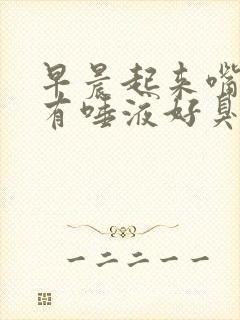 早晨起来嘴
有唾液好臭
一二二一一